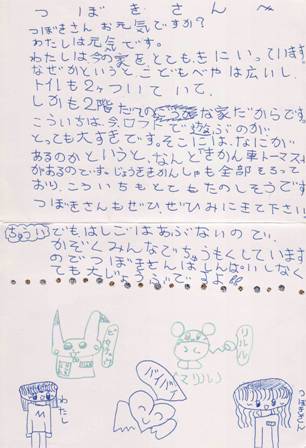 つばきさんへ
つばきさん お元気ですか?
わたしは元気です。
わたしは今の家をとてもきにいっています。
なぜかというと、こどもべやは広いし、
トイレも2ヶついていて、
しかも2階だての な家だからです。
こういちは、今ロフトで遊ぶのが
とっても大すきです。そこには、なにが
あるのかというと、なんときかん車トーマス
があるのです。じょうききかんしゃも全部そろって
おり、こういちもとてもたのしそうです
つばきさんもぜひ、ぜひみに来て下さい
ちゅうい でもはしごはあぶないので、
かぞくみんなでちゅうもくしています
のでつばきさんはしんぱいしなく
ても大じょうぶですよ!!
リルル
マリルリ
バイバイ
わたし
つばきさん